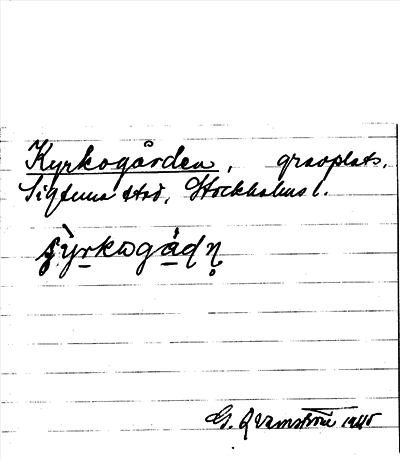 Kyrkogården, gravplats.
Sigtuna stad, Stockholms l.
G. Qvarnström 1945